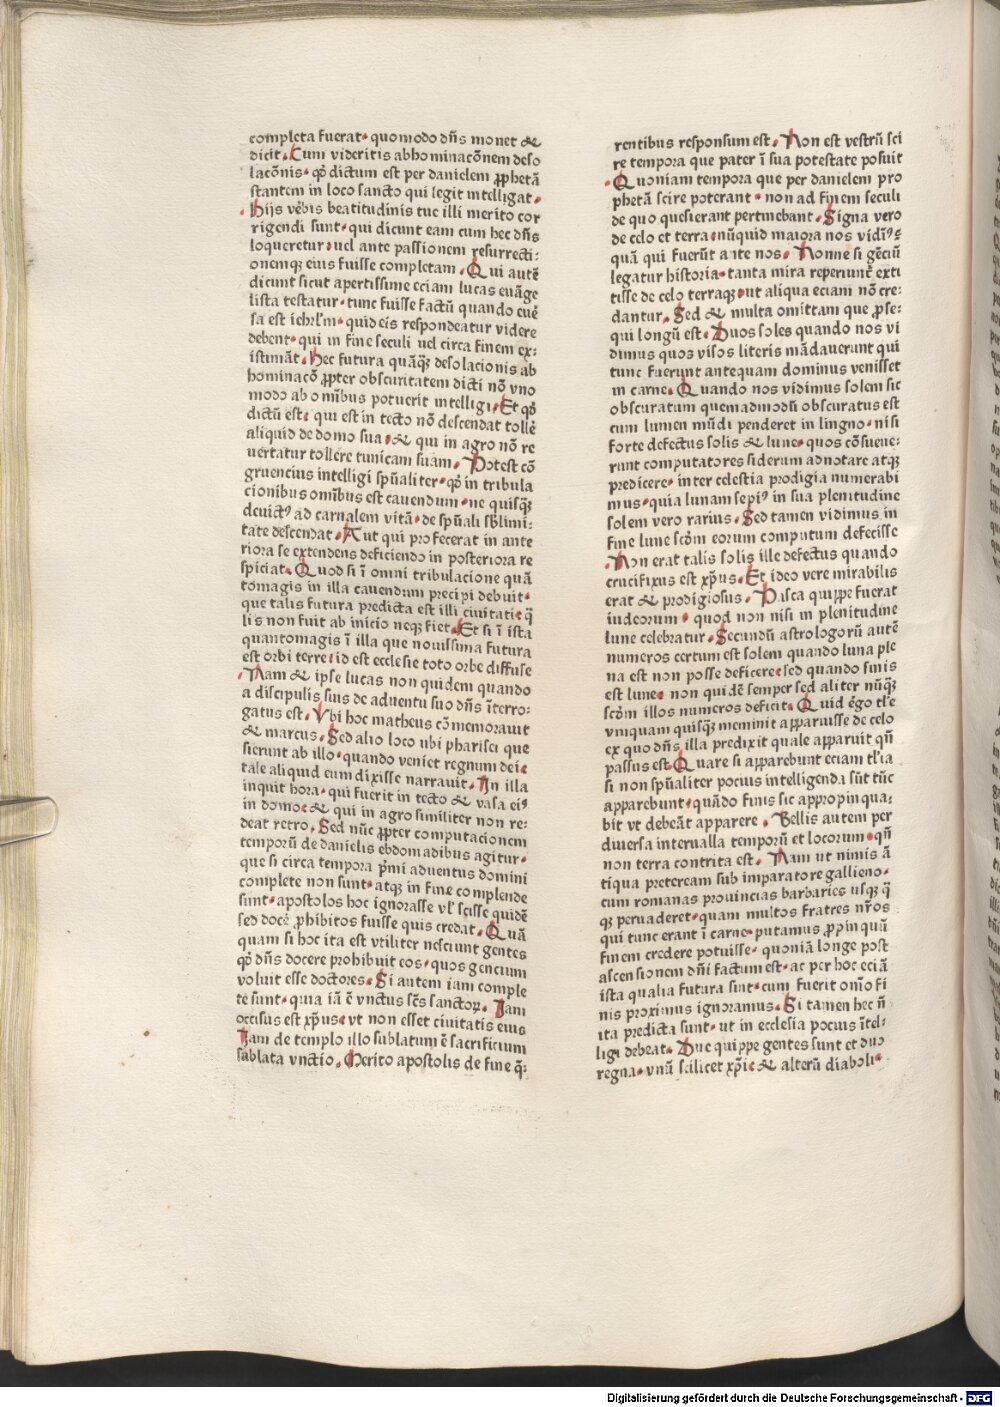 completa fuerat· quomodo dn̄s monet &
dicit· Cum videritis abhominacōnem deso
lacōnis· qꝺ̄ dictum est per danielem ꝓphetā
stantem in loco sancto qui legit intelligat·
Hijs vēbis beatitudinis tue illi merito cor
rigendi sunt· qui dicunt eam cum hec dn̄s
loqueretur· uel ante passionem resurrecti:
onemqꝫ eius fuisse completam· Qui autē
dicunt sicut apertissime eciam lucas euāge
lista testatur· tunc fuisse factū quando euē
sa est ieħrlm̄· quid eis respondeatur videre
debent· qui in fine seculi uel circa finem ex:
istimāt· Hec futura quāqꝫ̄ desolacionis ab
hominacō ꝓpter obscuritatem dicti nō vno
modo ab om̄ibus potuerit intelligi· Et qꝺ̄
dictū est· qui est in tecto nō descendat tollē
aliquid de domo sua· & qui in agro nō re
uertatur tollere tunicam suam· Potest cō
gruencius intelligi spūaliter· qꝺ̄ in tribula
cionibus om̄ibus est cauendum· ne quisqꝫ̄
deuictꝰ ad carnalem vitā· de spūali sb̄limi:
tate descendat· Aut qui profecerat in ante
riora se extendens deficiendo in posteriora re
spiciat· Quod si ī omni tribulacione quā
tomagis in illa cauendum precipi debuit·
que talis futura predicta est illi ciuitati· q̄
lis non fuit ab inicio neqꝫ fiet· Et si ī ista
quantomagis ī illa que nouissima futura
est orbi terre· id est ecclesie toto orbe diffuse
Nam & ipse lucas non quidem quando
a discipulis suis de aduentu suo dn̄s īterro:
gatus est· Vbi hoc matheus cōmemorauit
& marcus· Sed alio loco ubi pharisei que
sierunt ab illo· quando veniet regnum dei·
tale aliquid eum dixisse narrauit· In illa
inquit hora· qui fuerit in tecto & vasa eiꝰ
in domo· & qui in agro similiter non re:
deat retro· Sed nūc ꝓpter computacionem
temporū de danielis ebdomadibus agitur·
que si circa tempora p̄mi aduentus domini
complete non sunt· atqꝫ in fine complende
sunt· apostolos hoc ignorasse vl̄ scisse quidē
sed docē̄ ꝓhibitos fuisse quis credat· Quā
quam si hoc ita est vtiliter nesciunt gentes
qꝺ̄ dn̄s docere prohibuit eos· quos gencium
voluit esse doctores· Si autem iam comple
te sunt· quia iā ē vnctus sc̄s sanctoꝝ· Iam
occisus est xp̄us· vt non esset ciuitatis eius
Iam de templo illo sublatum ē sacrificium
sablata vnctio· Merito apostolis de fine q̄:
rentibus responsum est· Non est vestrū sci
re tempora que pater ī sua potestate posuit
Quoniam tempora que per danielem pro
phetā scire poterant· non ad finem seculi
de quo quesierant pertinebant· Signa vero
de celo et terra· nūquid maiora nos vidīꝰ ꝗ
quā qui fuerūt ante nos· Nonne si gēciū
legatur historia· tanta mira reperiunt̄ exti
tisse de celo terraqꝫ· ut aliqua eciam nō cre:
dantur· Sed & multa omittam que ꝓse:
qui longū est· Duos soles quando nos vi
dimus quos visos literis mādauerunt qui
tunc fuerunt antequam dominus venisset
in carne· Quando nos vidimus solem sic
obscuratum quemadmodū obscuratus est
cum lumen mūdi penderet in lingno· nisi
forte defectus solis & lune· quos cōsueue:
runt computatores siderum adnotare atqꝫ
predicere· inter celestia prodigia numerabi
mus· quia lunam sepiꝰ in sua plenitudine
solem vero rarius· Sed tamen vidimus in
fine lune scdm̄ eorum computum defecisse
Non erat talis solis ille defectus quando
crucifixus est xp̄us· Et ideo vere mirabilis
erat & prodigiosus· Pasca quippe fuerat
iudeorum· quod non nisi in plenitudine
lune celebratur· Secundū astrologorū autē
numeros certum est solem quando luna ple
na est non posse deficere· sed quando finis
est lune· non quidē semper sed aliter nūqꝫ̄
scdm̄ illos numeros deficit· Quid ēgo tl̄e
vniquam quisqꝫ meminit apparuisse de celo
ex quo dn̄s illa predixit quale apparuit qn̄
passus est· Quare si apparebunt eciam tl̄ia
si non spūaliter pocius intelligenda sūt tūc
apparebunt· quādo finis sic appropinqua:
bit vt debeāt apparere· Bellis autem per
diuersa interualla temporū et locorum· qn̄
non terra contrita est· Nam ut nimis ā
tiqua preteream sub imparatore gallieno·
cum romanas prouincias barbaries usqꝫ q̄
qꝫ peruaderet· quam multos fratres nr̄os
qui tunc erant ī carne· putamus ꝓpinquū
finem credere potuisse· quoniā longe post
ascensionem dn̄i factum est· ac per hoc eciā
ista qualia futura sint· cum fuerit om̄o fi
nis proximus ignoramus· Si tamen hec n̄
ita predicta sunt· ut in ecclesia pocius ītel:
ligi debeat· Due quippe gentes sunt et duo
regna· vnū scilicet xp̄i· & alterū diaboli·
Digitalisierung gefördert durch die Deutsche Forschungsgemeinschaft - DFG